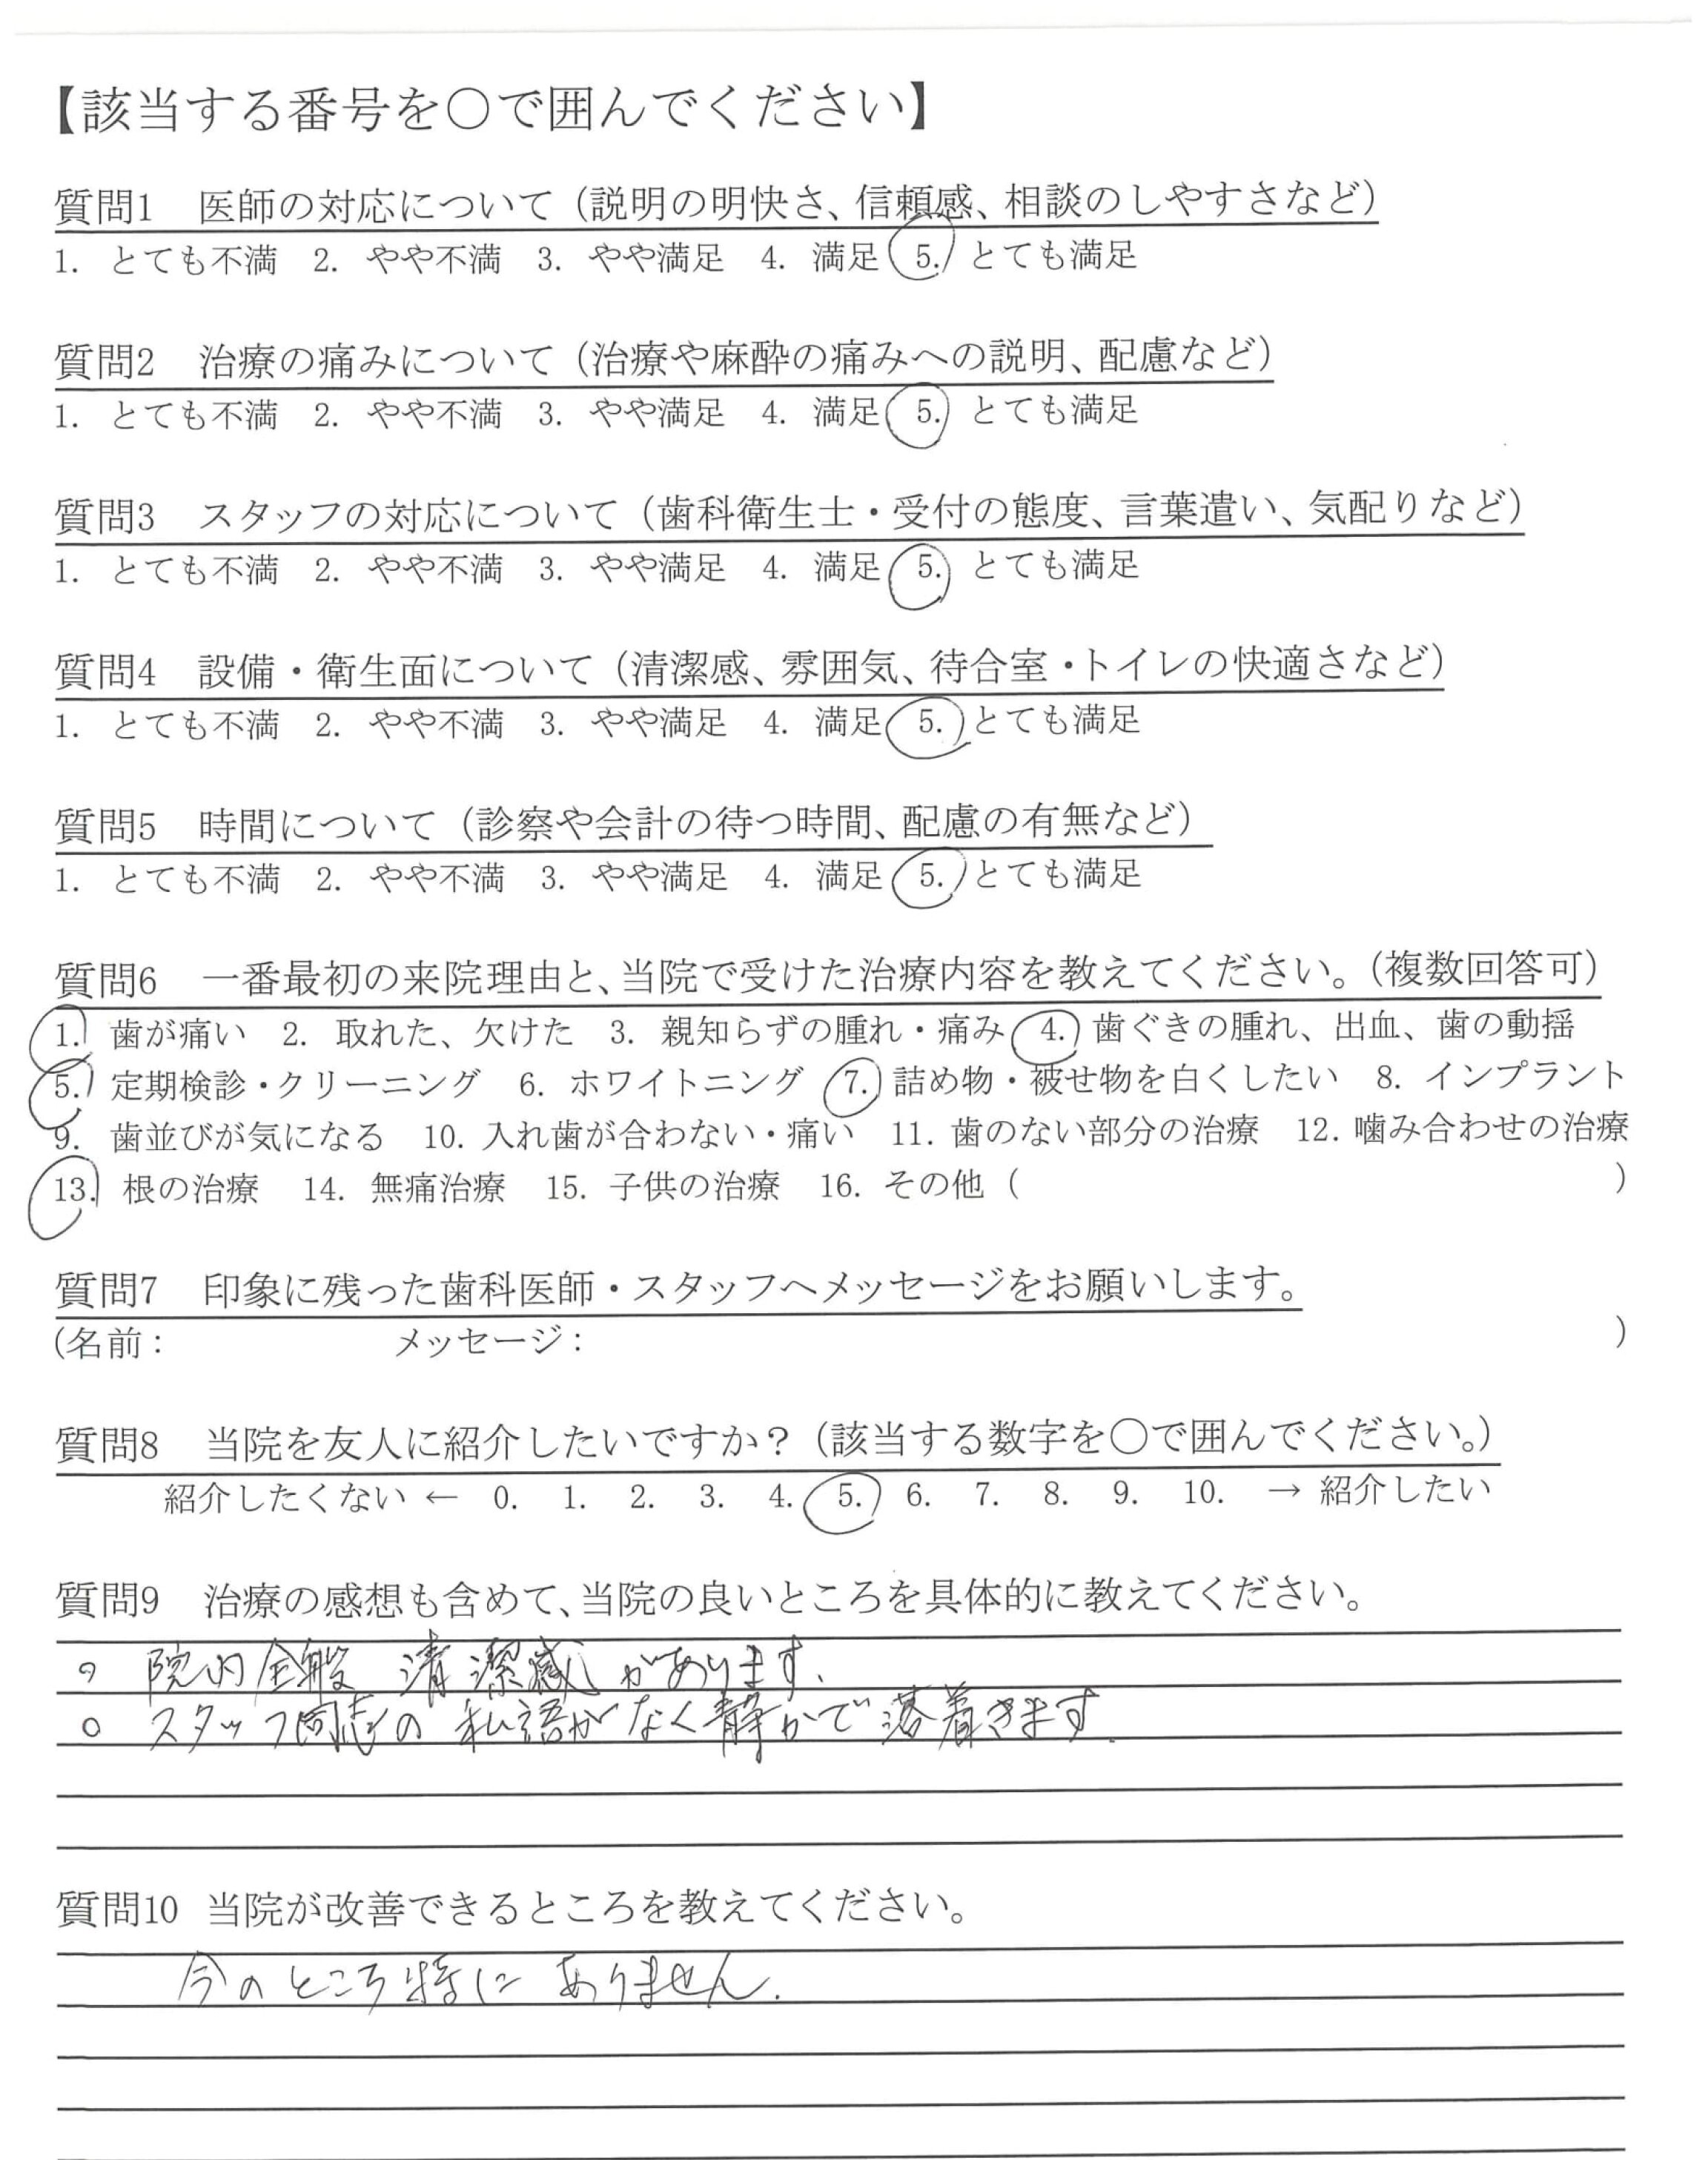 【該当する番号を〇で囲んでください】
質問1　医師の対応について（説明の明快さ、信頼感、相談のしやすさなど）
1. とても不満　2. やや不満　3. やや満足　4. 満足　5. とても満足
質問2　治療の痛みについて（治療や麻酔の痛みへの説明、配慮など）
1. とても不満　2. やや不満　3. やや満足　4. 満足　5. とても満足
質問3　スタッフの対応について（歯科衛生士・受付の態度、言葉遣い、気配りなど）
1. とても不満　2. やや不満　3. やや満足　4. 満足　5. とても満足
質問4　設備・衛生面について（清潔感、雰囲気、待合室・トイレの快適さなど）
1. とても不満　2. やや不満　3. やや満足　4. 満足　5. とても満足
質問5　時間について（診察や会計の待つ時間、配慮の有無など）
1. とても不満　2. やや不満　3. やや満足　4. 満足　5. とても満足
質問6　一番最初の来院理由と、当院で受けた治療内容を教えてください。（複数回答可）
1. 歯が痛い　2. 取れた、欠けた　3. 親知らずの腫れ・痛み　4. 歯ぐきの腫れ、出血、歯の動揺
5. 定期検診・クリーニング　6. ホワイトニング　7. 詰め物・被せ物を白くしたい　8. インプラント
9. 歯並びが気になる　10. 入れ歯が合わない・痛い　11. 歯のない部分の治療　12. 噛み合わせの治療
13. 根の治療　14. 無痛治療　15. 子供の治療　16. その他（　　　）
質問7　印象に残った歯科医師・スタッフへメッセージをお願いします。
（名前：　　　メッセージ：　　　）
質問8　当院を友人に紹介したいですか？（該当する数字を〇で囲んでください。）
紹介したくない ← 0. 1. 2. 3. 4. 5. 6. 7. 8. 9. 10. → 紹介したい
質問9　治療の感想も含めて、当院の良いところを具体的に教えてください。
○ 院内全般 清潔感があります.
○ スタッフ同志の私語がなく静かで落着きます.
質問10　当院が改善できるところを教えてください。
今のところ特に ありません.